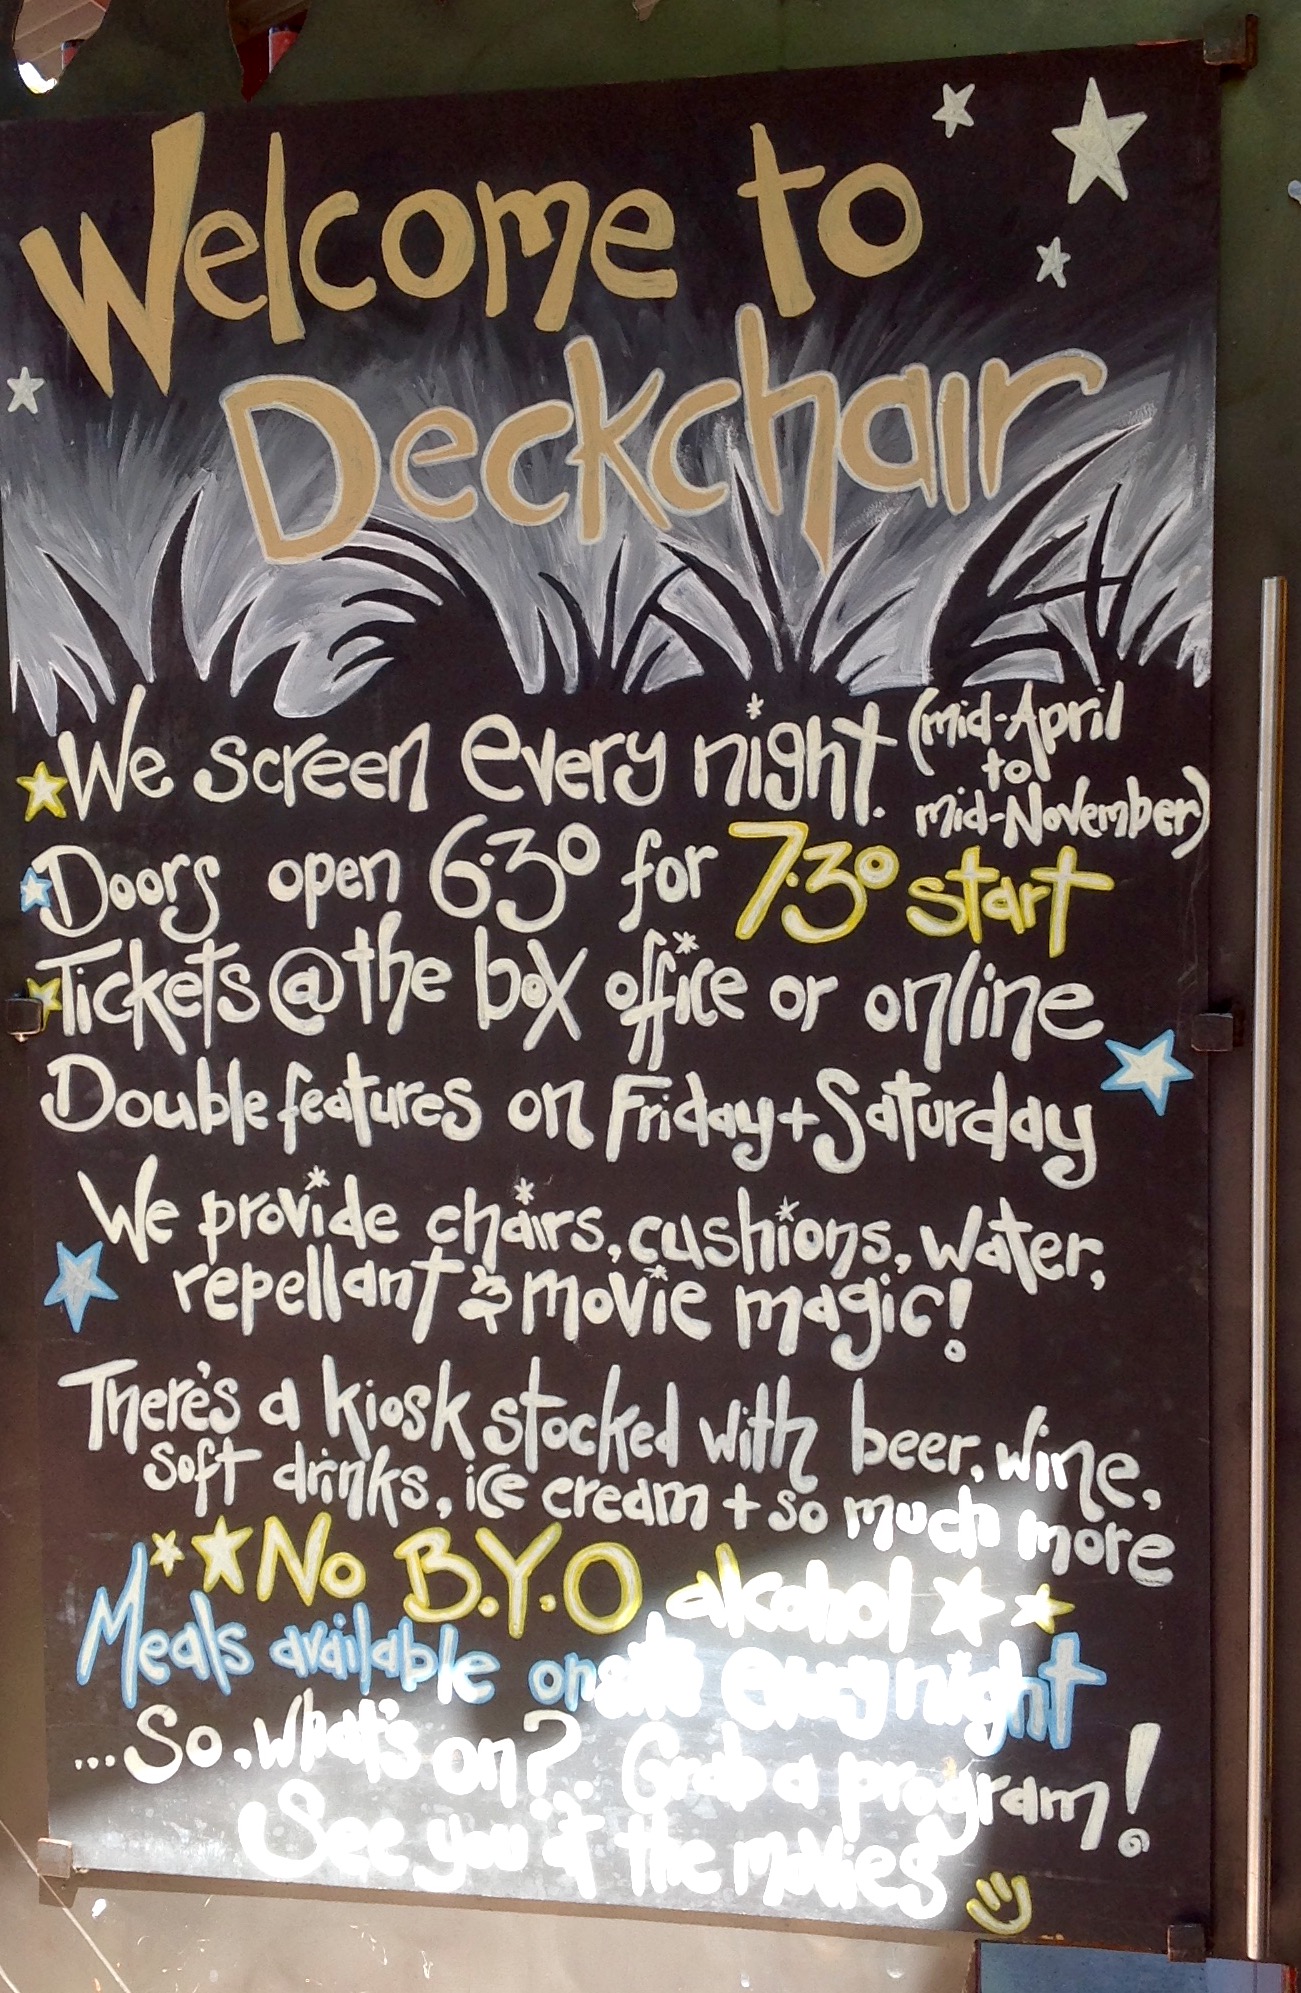 Welcome to
Deckchair
We screen every night. (mid-April
to
mid-November)
Doors open 6.30 for 7.30 start
Tickets @ the box office or online
Double features on Friday + Saturday
We provide chairs, cushions, water,
repellant & movie magic!
There's a kiosk stocked with beer, wine,
soft drinks, ice cream + so much more
No B.Y.O alcohol
Meals available onsite every night
...So, what's on?.. Grab a program!
See you at the movies